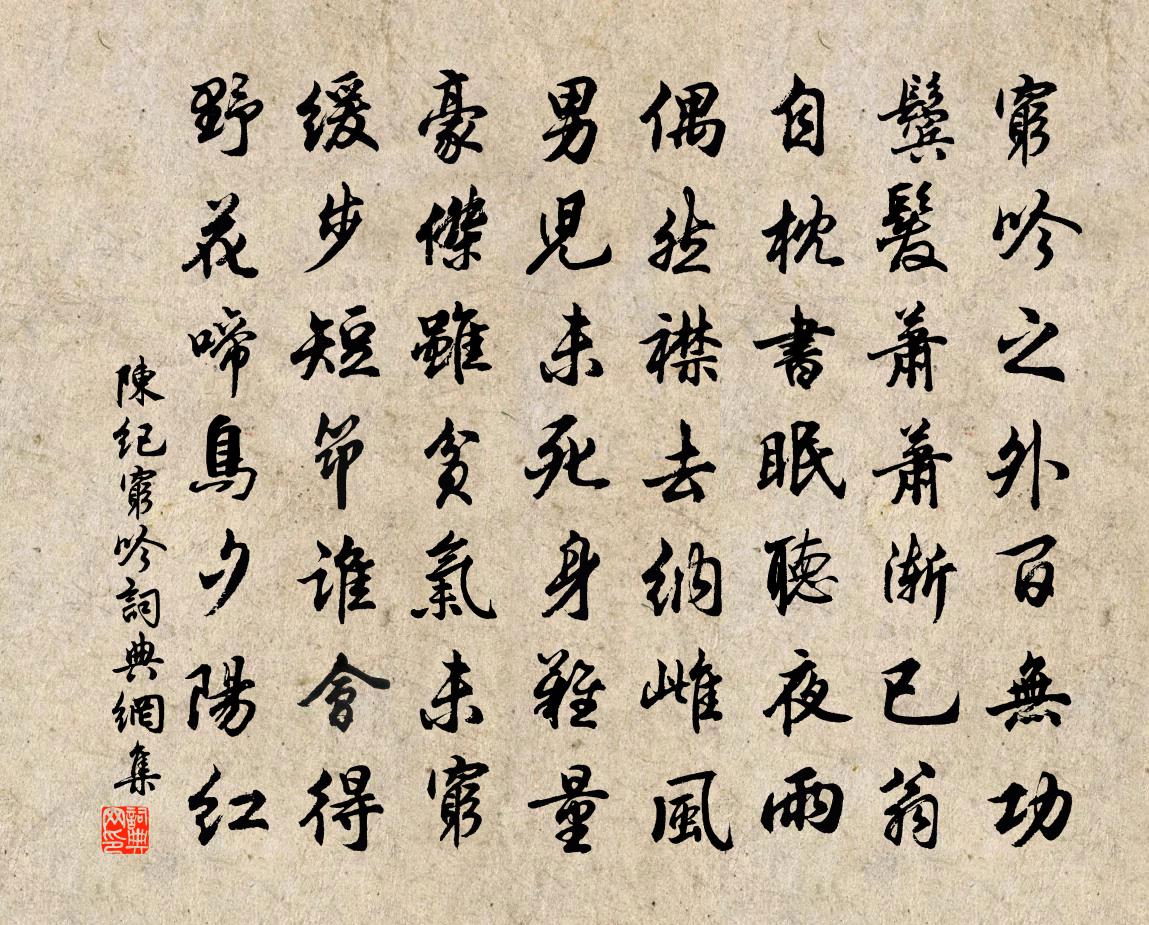 窮吟之外百無功
鬢髮蕭蕭漸已翁
自枕書眠聽夜雨
偶然襟去納雌風
男兒未死身難量
豪傑雖貧氣未窮
緩步短筇誰會得
野花啼鳥夕陽紅
陳紀窮吟詞典網集
詞典网印